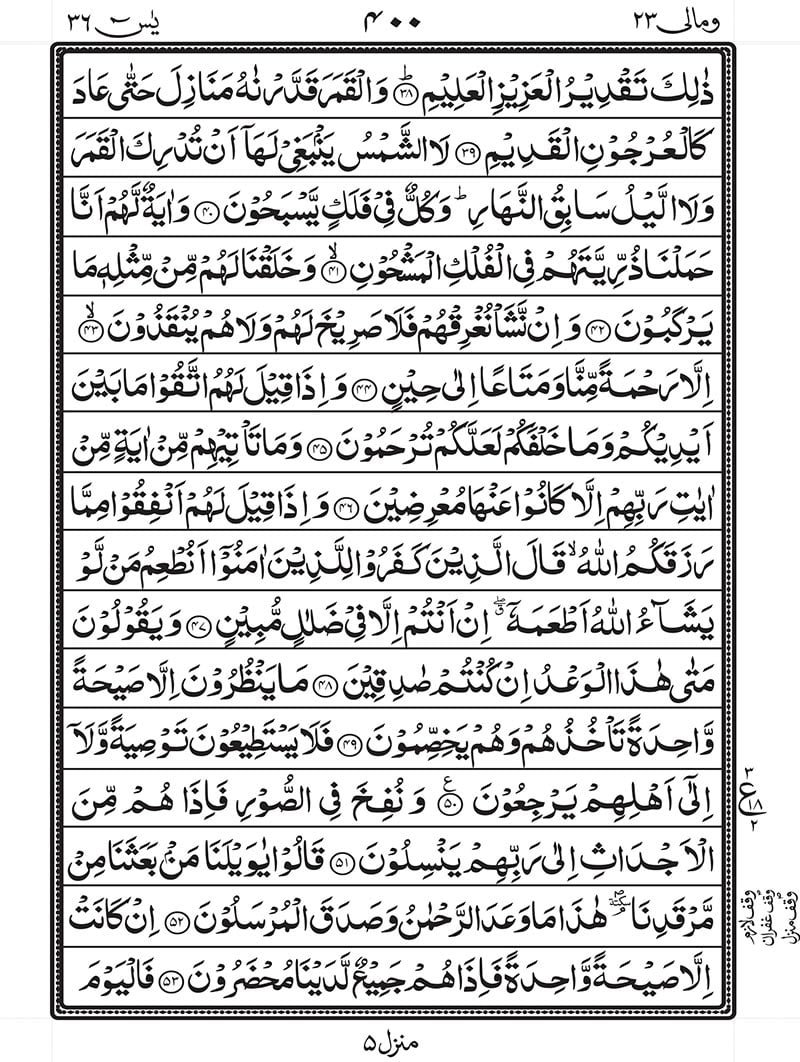 ومالی ۲۳ ۴۰۰ یٰسٓ ۳۶
ذٰلِكَ تَقْدِيْرُ الْعَزِيْزِ الْعَلِيْمِ ؕ﴿۳۸﴾ وَالْقَمَرَ قَدَّرْنٰهُ مَنَازِلَ حَتّٰى عَادَ
كَالْعُرْجُوْنِ الْقَدِيْمِ ﴿۳۹﴾ لَا الشَّمْسُ يَنْۢبَغِىْ لَهَاۤ اَنْ تُدْرِكَ الْقَمَرَ
وَلَا الَّيْلُ سَابِقُ النَّهَارِ ؕ وَكُلٌّ فِىْ فَلَكٍ يَّسْبَحُوْنَ ﴿۴۰﴾ وَاٰيَةٌ لَّهُمْ اَنَّا
حَمَلْنَا ذُرِّيَّتَهُمْ فِى الْفُلْكِ الْمَشْحُوْنِ ۙ﴿۴۱﴾ وَخَلَقْنَا لَهُمْ مِّنْ مِّثْلِهٖ مَا
يَرْكَبُوْنَ ﴿۴۲﴾ وَاِنْ نَّشَاْ نُغْرِقْهُمْ فَلَا صَرِيْخَ لَهُمْ وَلَا هُمْ يُنْقَذُوْنَ ۙ﴿۴۳﴾
اِلَّا رَحْمَةً مِّنَّا وَمَتَاعًا اِلٰى حِيْنٍ ﴿۴۴﴾ وَاِذَا قِيْلَ لَهُمُ اتَّقُوْا مَا بَيْنَ
اَيْدِيْكُمْ وَمَا خَلْفَكُمْ لَعَلَّكُمْ تُرْحَمُوْنَ ﴿۴۵﴾ وَمَا تَاْتِيْهِمْ مِّنْ اٰيَةٍ مِّنْ
اٰيٰتِ رَبِّهِمْ اِلَّا كَانُوْا عَنْهَا مُعْرِضِيْنَ ﴿۴۶﴾ وَاِذَا قِيْلَ لَهُمْ اَنْفِقُوْا مِمَّا
رَزَقَكُمُ اللّٰهُ ۙ قَالَ الَّذِيْنَ كَفَرُوْا لِلَّذِيْنَ اٰمَنُوْۤا اَنُطْعِمُ مَنْ لَّوْ
يَشَآءُ اللّٰهُ اَطْعَمَهٗۤ ۖ ق اِنْ اَنْتُمْ اِلَّا فِىْ ضَلٰلٍ مُّبِيْنٍ ﴿۴۷﴾ وَيَقُوْلُوْنَ
مَتٰى هٰذَا الْوَعْدُ اِنْ كُنْتُمْ صٰدِقِيْنَ ﴿۴۸﴾ مَا يَنْظُرُوْنَ اِلَّا صَيْحَةً
وَّاحِدَةً تَاْخُذُهُمْ وَهُمْ يَخِصِّمُوْنَ ﴿۴۹﴾ فَلَا يَسْتَطِيْعُوْنَ تَوْصِيَةً وَّلَاۤ
اِلٰٓى اَهْلِهِمْ يَرْجِعُوْنَ ع﴿۵۰﴾ وَنُفِخَ فِى الصُّوْرِ فَاِذَا هُمْ مِّنَ
۳ ع ۱۸ ۲
الْاَجْدَاثِ اِلٰى رَبِّهِمْ يَنْسِلُوْنَ ﴿۵۱﴾ قَالُوْا يٰوَيْلَنَا مَنْۢ بَعَثَنَا مِنْ
مَّرْقَدِنَا ۘ سكتة هٰذَا مَا وَعَدَ الرَّحْمٰنُ وَصَدَقَ الْمُرْسَلُوْنَ ﴿۵۲﴾ اِنْ كَانَتْ
وقف لازم
وقف غفران
وقف منزل
اِلَّا صَيْحَةً وَّاحِدَةً فَاِذَا هُمْ جَمِيْعٌ لَّدَيْنَا مُحْضَرُوْنَ ﴿۵۳﴾ فَالْيَوْمَ
منزل ۵